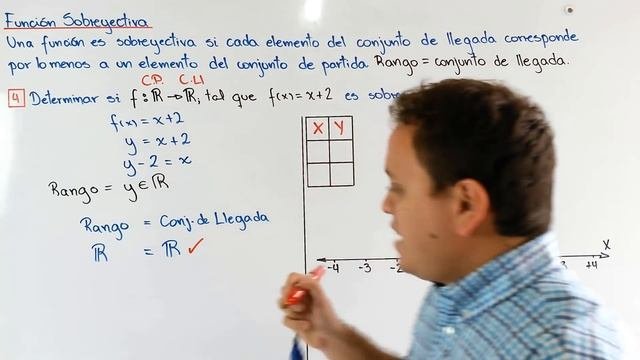 Función Sobreyectiva
Una función es sobreyectiva si cada elemento del conjunto de llegada corresponde
por lo menos a un elemento del conjunto de partida Rango = conjunto de llegada.
C.P. C.Ll
4 Determinar si f: ℝ → ℝ, tal que f(x) = x+2 es
f(x) = x+2
y = x+2
y-2 = x
Rango = y ∈ ℝ
Rango = Conj. de Llegada
ℝ = ℝ ✓
X Y
X
-4 -3 +4